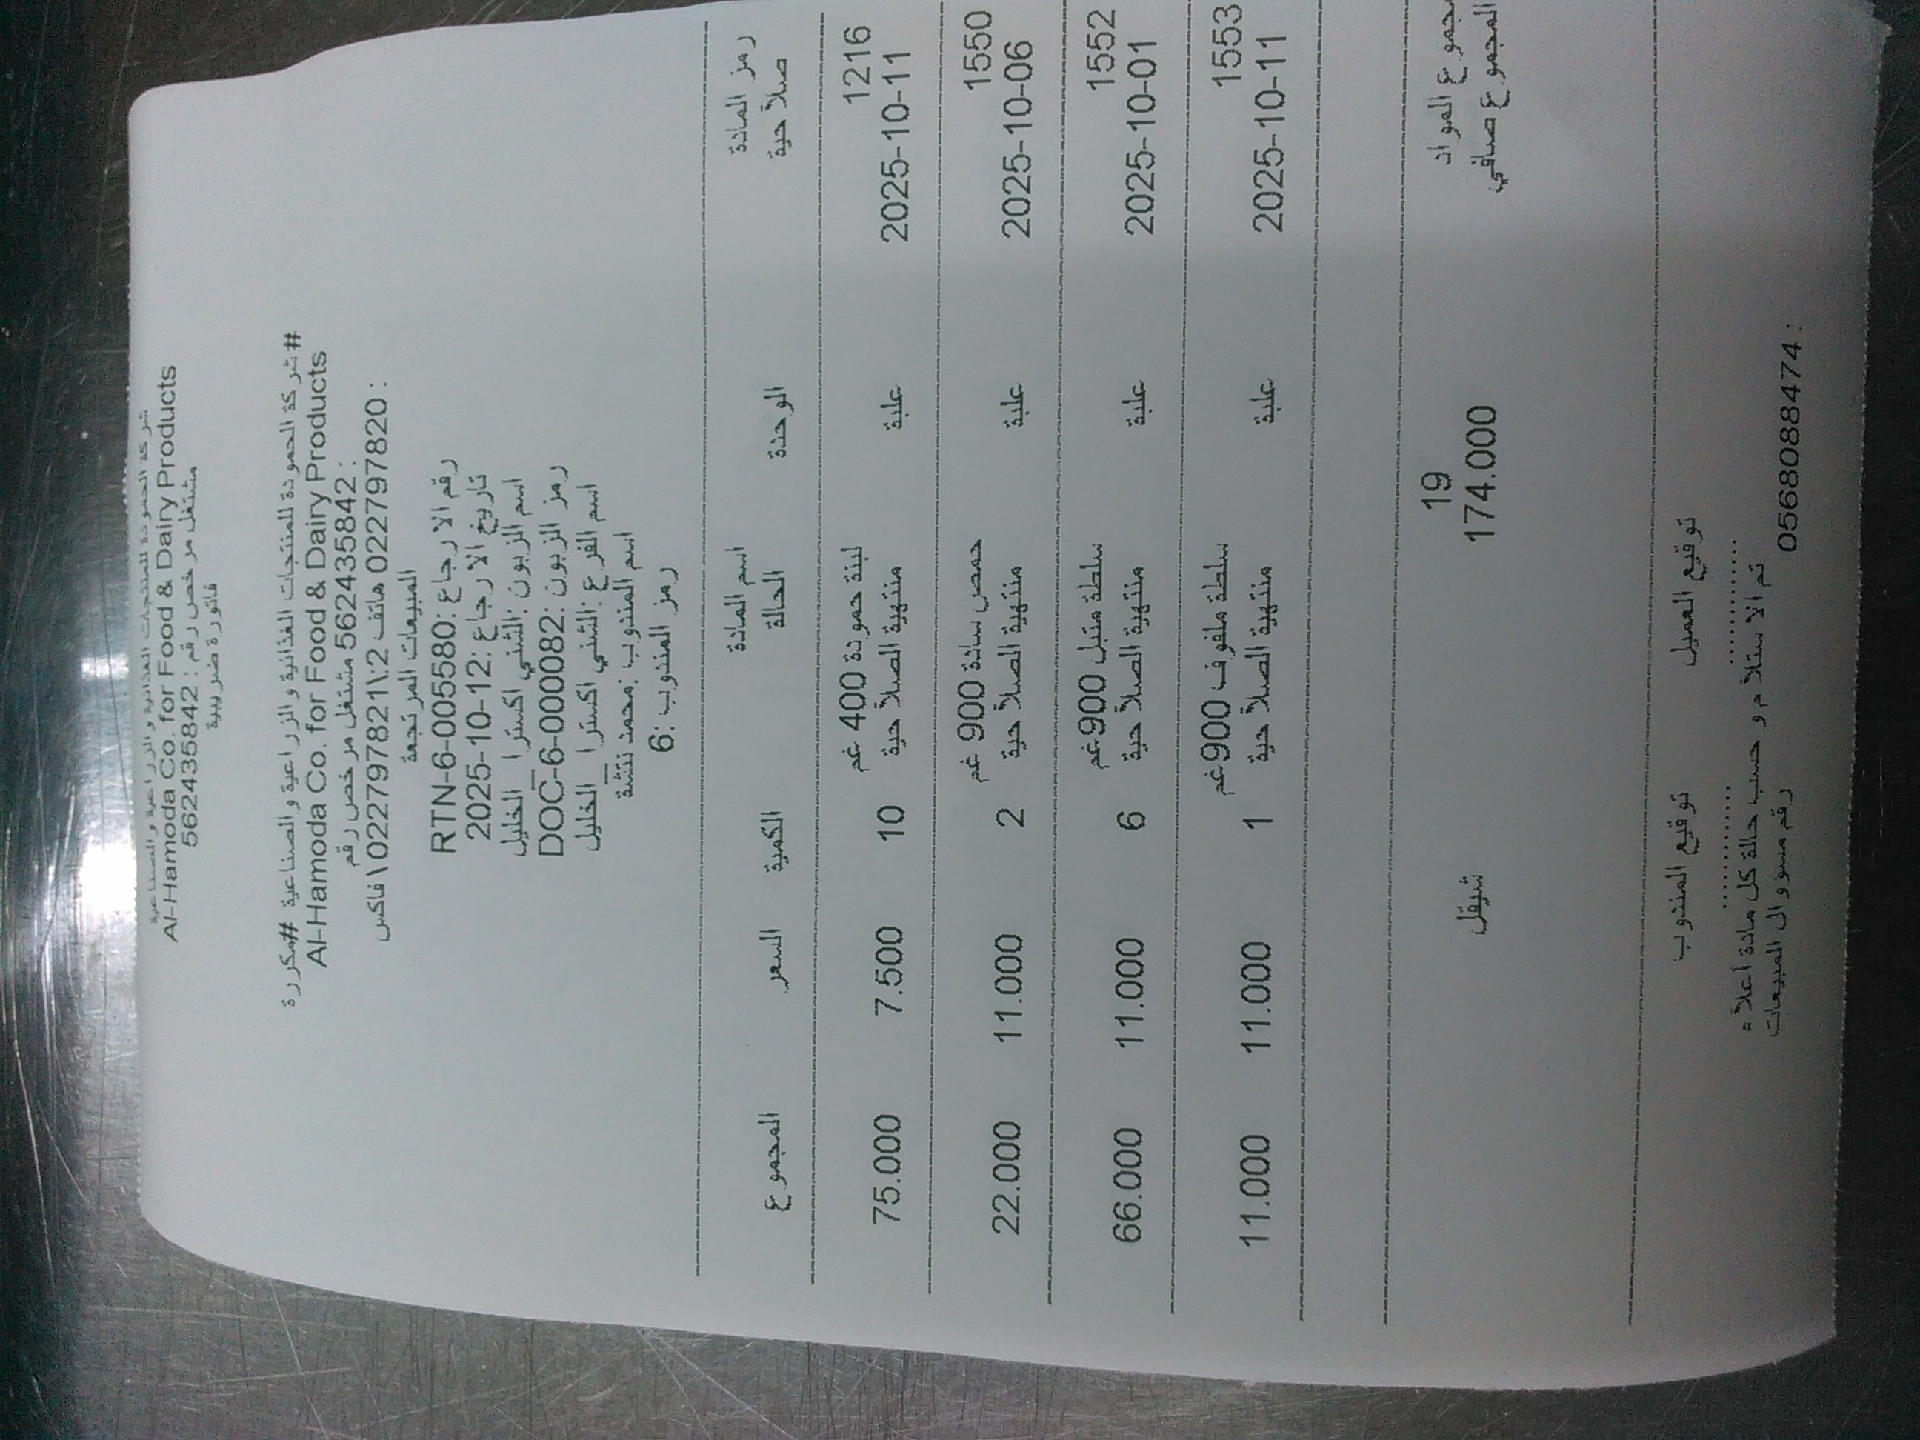 شركة الحمودة للمنتجات الغذائية والزراعية والصناعية
Al-Hamoda Co. for Food & Dairy Products
مشتغل مرخص رقم : 562435842
فاتورة ضريبية
#شركة الحمودة للمنتجات الغذائية والزراعية والصناعية #مكررة
Al-Hamoda Co. for Food & Dairy Products
562435842 مشتغل مرخص رقم :
022797821\2 هاتف 022797820\ فاكس :
المبيعات المرتجعة
رقم الارجاع :RTN-6-005580
تاريخ الارجاع :2025-10-12
اسم الزبون :الشني اكسترا_الخليل
رمز الزبون :DOC-6-000082
اسم الفرع :الشني اكسترا_الخليل
اسم المندوب :محمد نتشة
رمز المندوب :6
رمز المادة اسم المادة
صلاحية الوحدة الحالة الكمية السعر المجموع
1216 لبنة حمودة 400 غم
2025-10-11 علبة منتهية الصلاحية 10 7.500 75.000
1550 حمص سادة 900 غم
2025-10-06 علبة منتهية الصلاحية 2 11.000 22.000
1552 سلطة متبل 900غم
2025-10-01 علبة منتهية الصلاحية 6 11.000 66.000
1553 سلطة ملفوف 900غم
2025-10-11 علبة منتهية الصلاحية 1 11.000 11.000
مجموع المواد 19
المجموع صافي 174.000 شيقل
توقيع العميل توقيع المندوب
............... ...............
تم الاستلام و حسب حالة كل مادة اعلاه
رقم مسؤوال المبيعات 0568088474 :